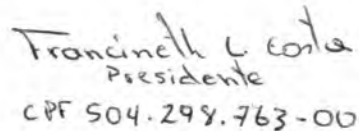 Francineth L. Costa
Presidente
CPF 504.298.763-00